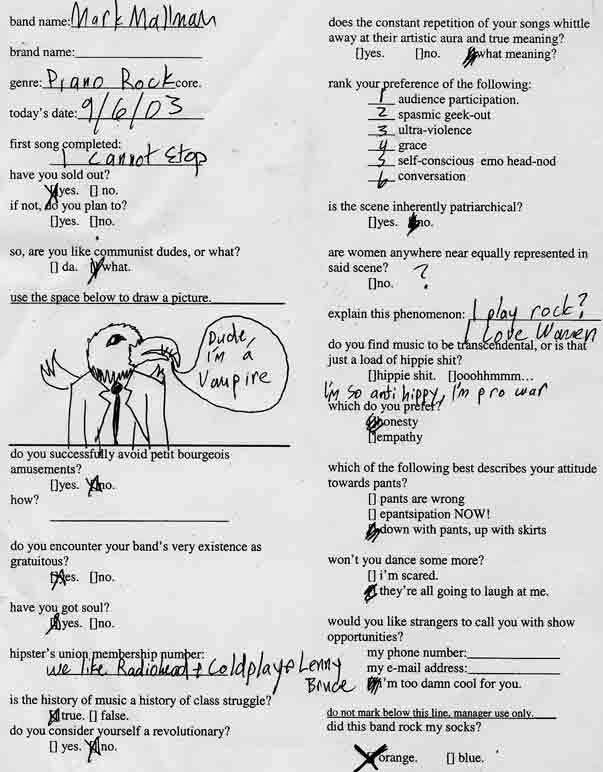 band name: Mark Mallman
brand name:
genre: Piano Rock core.
today's date: 9/6/03
first song completed:
I Cannot Stop
have you sold out?
[]yes. [] no.
if not, do you plan to?
[]yes. []no.
so, are you like communist dudes, or what?
[] da. []what.
use the space below to draw a picture.
Dude,
I'm a
Vampire
do you successfully avoid petit bourgeois
amusements?
[]yes. []no.
how?
do you encounter your band's very existence as
gratuitous?
[]yes. []no.
have you got soul?
[]yes. []no.
hipster's union membership number:
we like Radiohead + Coldplay + Lenny
Bruce
is the history of music a history of class struggle?
[]true. [] false.
do you consider yourself a revolutionary?
[] yes. []no.
does the constant repetition of your songs whittle
away at their artistic aura and true meaning?
[]yes. []no. []what meaning?
rank your preference of the following:
1 audience participation.
2 spasmic geek-out
3 ultra-violence
4 grace
5 self-conscious emo head-nod
6 conversation
is the scene inherently patriarchical?
[]yes. []no.
are women anywhere near equally represented in
said scene? ?
[]no.
explain this phenomenon: I play rock?
I Love Women
do you find music to be transcendental, or is that
just a load of hippie shit?
[]hippie shit. []ooohhmmm...
I'm so anti hippy, I'm pro war
which do you prefer?
[]honesty
[]empathy
which of the following best describes your attitude
towards pants?
[] pants are wrong
[] epantsipation NOW!
[]down with pants, up with skirts
won't you dance some more?
[] i'm scared.
[] they're all going to laugh at me.
would you like strangers to call you with show
opportunities?
my phone number:
my e-mail address:
[]i'm too damn cool for you.
do not mark below this line, manager use only.
did this band rock my socks?
[]orange. [] blue.